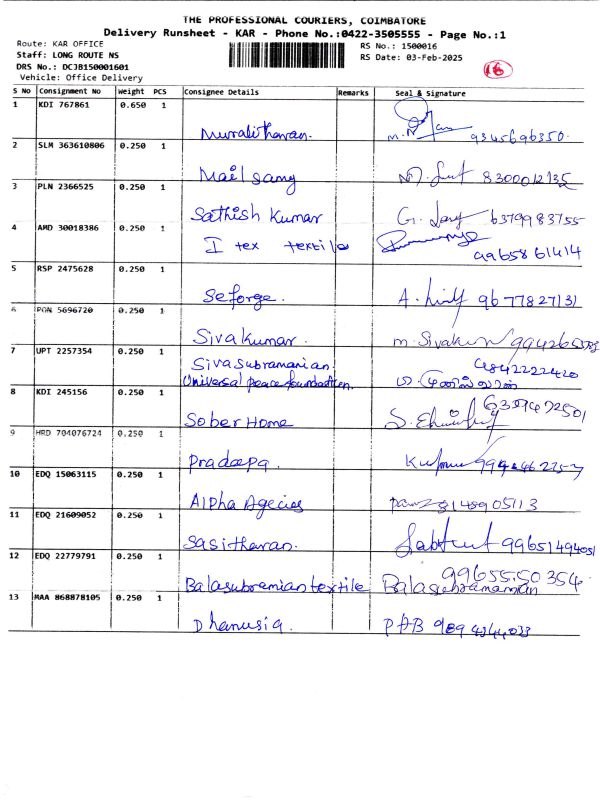 THE PROFESSIONAL COURIERS, COIMBATORE
Delivery Runsheet - KAR - Phone No.:0422-3505555 - Page No.:1
Route: KAR OFFICE
Staff: LONG ROUTE NS
DRS No.: DCJB150001601
Vehicle: Office Delivery
RS No.: 1500016
RS Date: 03-Feb-2025
16
S No Consignment No Weight PCS Consignee Details Remarks Seal & Signature
1 KDI 767861 0.650 1 Muralitharan. 9345696350.
2 SLM 363610806 0.250 1 Mail Samy 8300012135
3 PLN 2366525 0.250 1 Sathish Kumar 6379983755
4 AMD 30018386 0.250 1 I tex textile 9965861414
5 RSP 2475628 0.250 1 Seforge. 9677827131
6 PON 5696720 0.250 1 Sivakumar. m. Sivaku
7 UPT 2257354 0.250 1 Sivasubramanian. 4842222420
Universal peace foundation.
8 KDI 245156 0.250 1 Sober Home
9 HRD 704076724 0.250 1 Pradeepa.
10 EDQ 15063115 0.250 1 Alpha Agecies 8148905113
11 EDQ 21609052 0.250 1 Sasitharan. 9965149405
12 EDQ 22779791 0.250 1 Balasubramiantextile 9965550354
Balasubramanian
13 MAA 868878105 0.250 1 Dhanusia. PAB